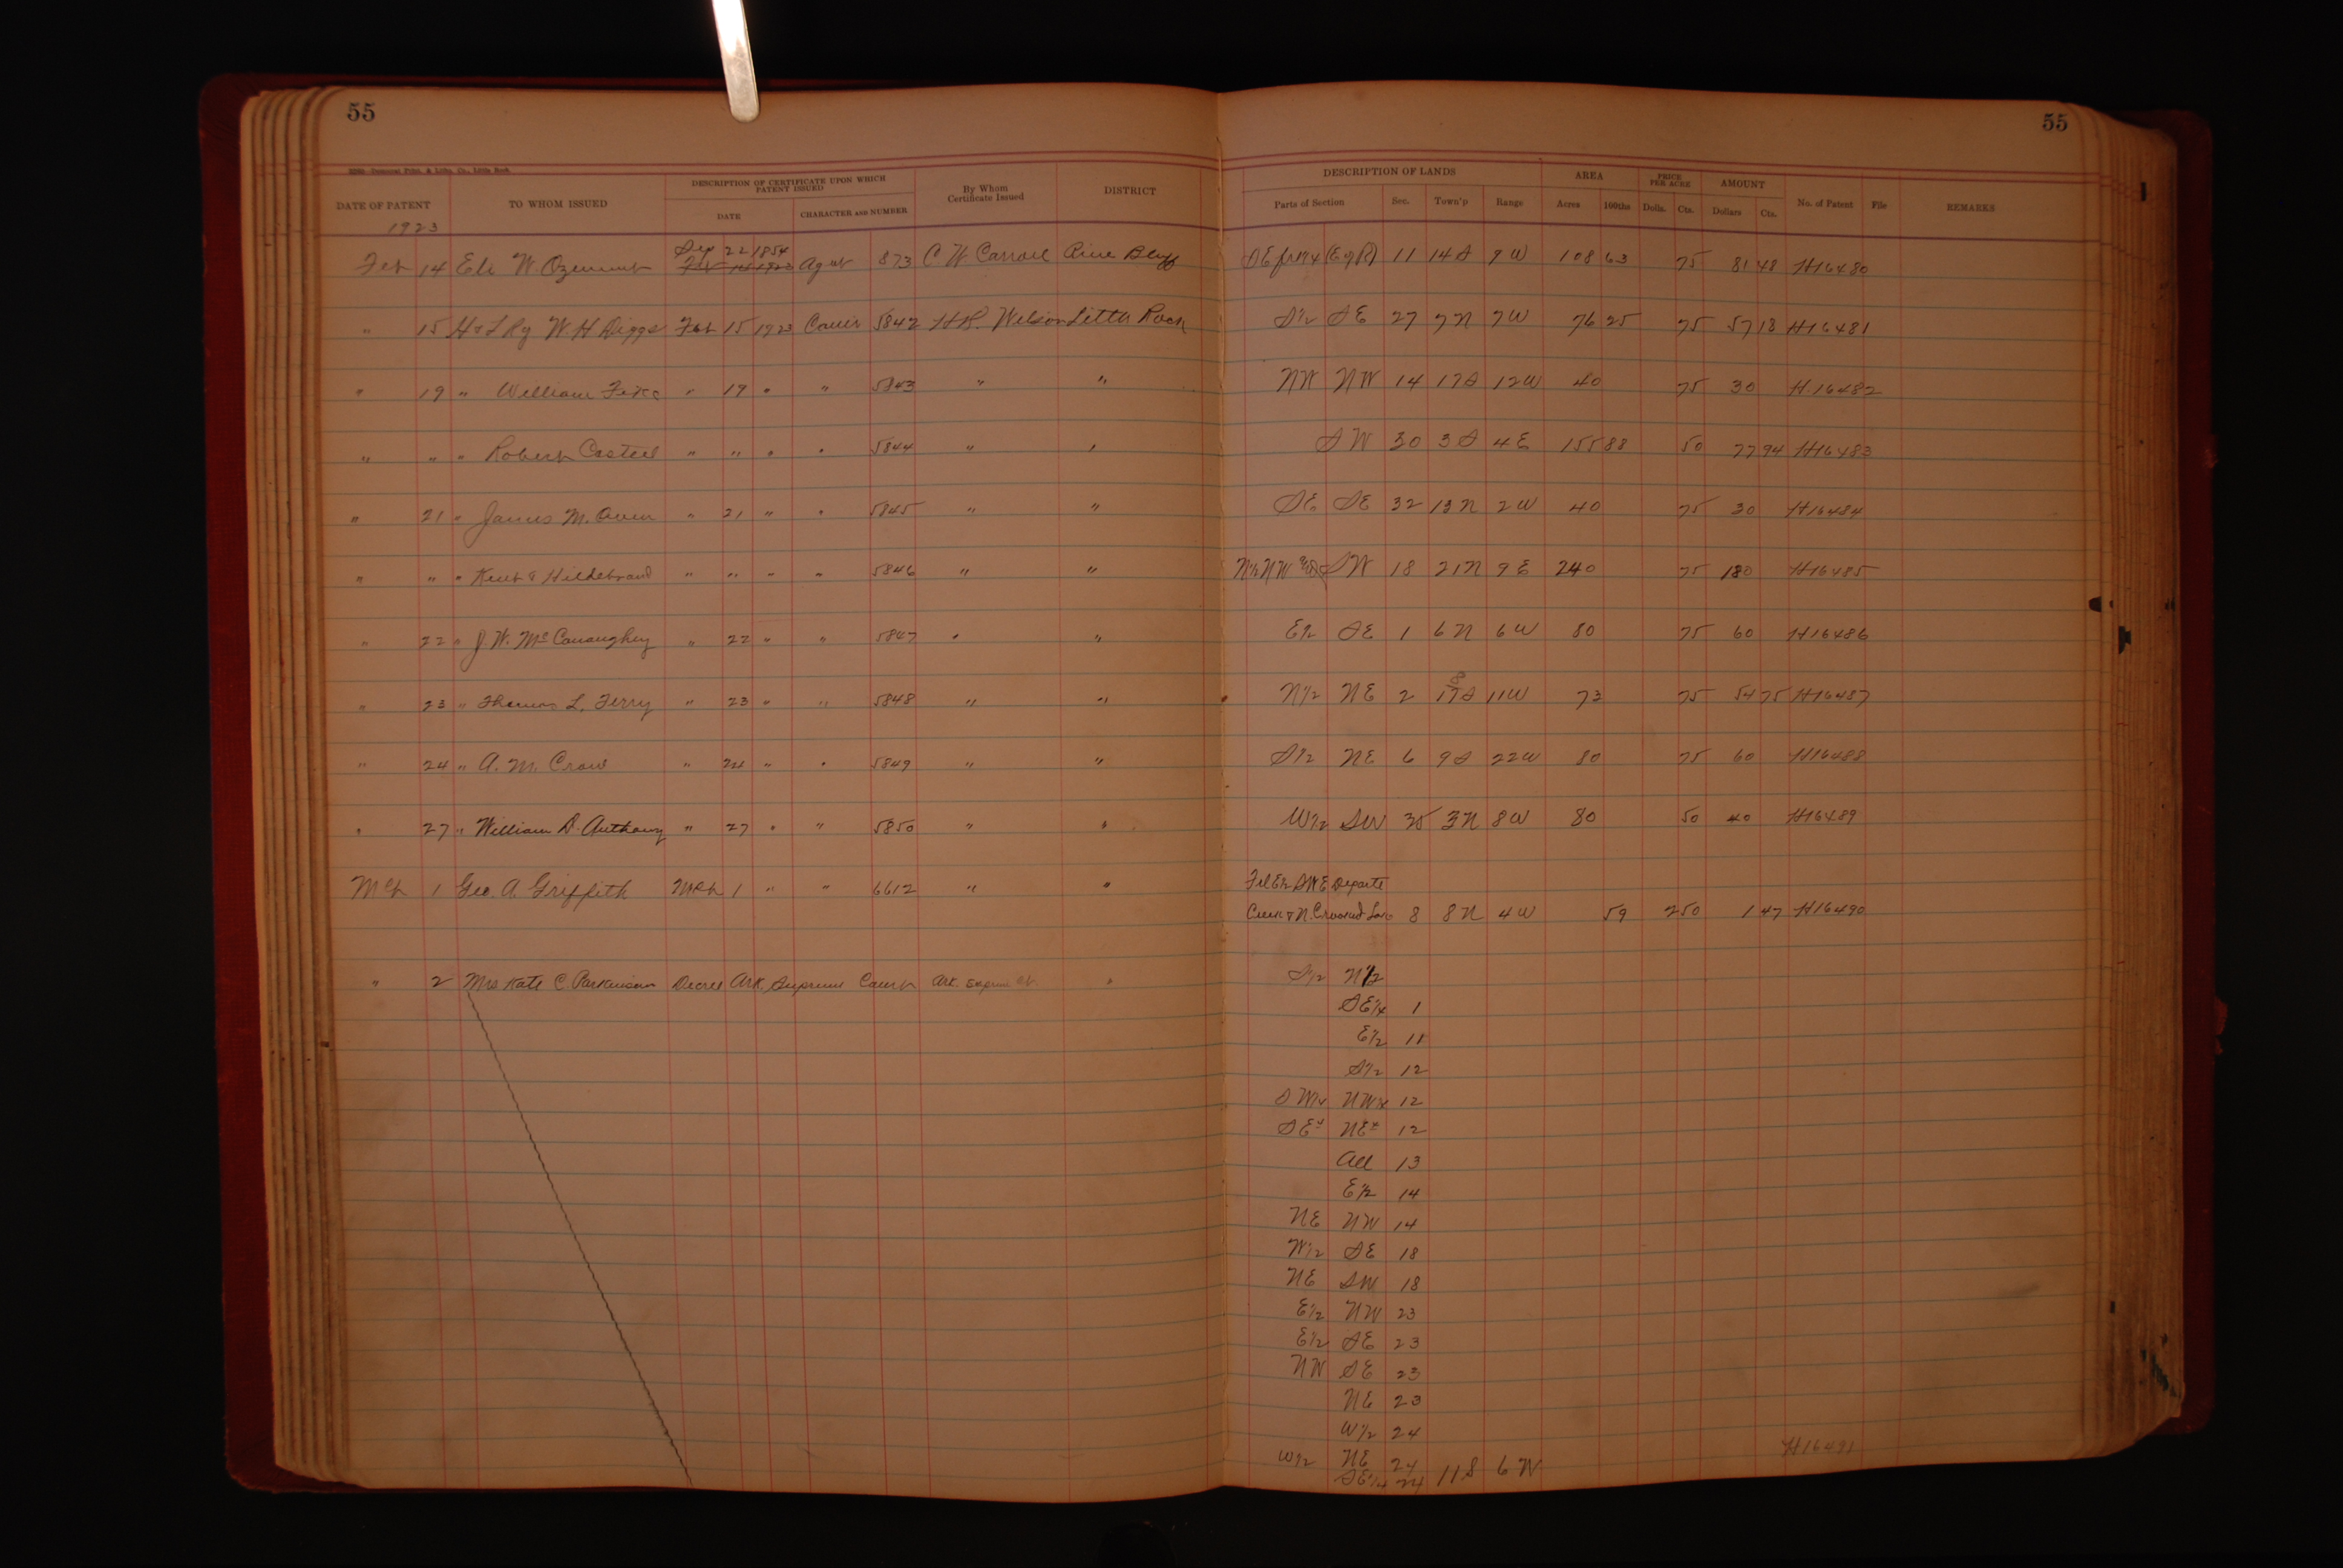 55
55
DATE OF PATENT TO WHOM ISSUED DESCRIPTION OF CERTIFICATE UPON WHICH PATENT ISSUED DATE CHARACTER AND NUMBER By Whom Certificate Issued DISTRICT DESCRIPTION OF LANDS Parts of Section Sec. Town'p Range AREA Acres 100ths PRICE PER ACRE Dolls. Cts. AMOUNT Dollars Cts. No. of Patent File REMARKS
1923
Sep 22 1854
Feb 14 Eli W. Ozemunt Feb 14 1923 Agst 873 C W Carroll Pine Bluff SE frl 1/4 (E of R) 11 14 S 9 W 108 63 75 81 48 H16480
" 15 H & L Ry W. H Diggs Feb 15 1923 Conv 5842 H.R. Wilson Little Rock S1/2 SE 27 7 N 7 W 76 25 75 57 18 H16481
" 19 " William " 19 " " 5843 " " NW NW 14 17 S 12 W 40 75 30 H.16482
" " " Robert Casteel " " " " 5844 " " SW 30 3 S 4 E 155 88 50 77 94 H16483
" 21 " James M. Owen " 21 " " 5845 " " SE SE 32 13 N 2 W 40 75 30 H16484
" " " & Hildebrand " " " " 5846 " " N1/2 NW SW 18 21 N 9 E 240 75 180 H16485
" 22 " J. W. McConaughey " 22 " " 5847 " " E1/2 SE 1 6 N 6 W 80 75 60 H16486
" 23 " Thomas L. Terry " 23 " " 5848 " " N1/2 NE 2 17 S 11 W 73 75 54 75 H16487
" 24 " A. M. Crow " 24 " " 5849 " " S1/2 NE 6 9 S 22 W 80 75 60 H16488
" 27 " William D. Anthony " 27 " " 5850 " " W1/2 SW 35 3 N 8 W 80 50 40 H16489
Mch 1 Geo. A. Griffith Mch 1 " " 6612 " " Frl E1/2 SW E Departe
Creek & N. Crooked Lake 8 8 N 4 W 59 2 50 1 47 H16490
" 2 Mrs Kate C. Parkinson Decree Ark. Supreme Court Ark. Supreme Ct " S1/2 N1/2
SE1/4 1
E1/2 11
S1/2 12
SW1/4 NW1/4 12
SE4 NE4 12
All 13
E1/2 14
NE NW 14
W1/2 SE 18
NE SW 18
E1/2 NW 23
E1/2 SE 23
NW SE 23
NE 23
W1/2 24
W1/2 NE 24 H16491
SE1/4 24 11 S 6 W